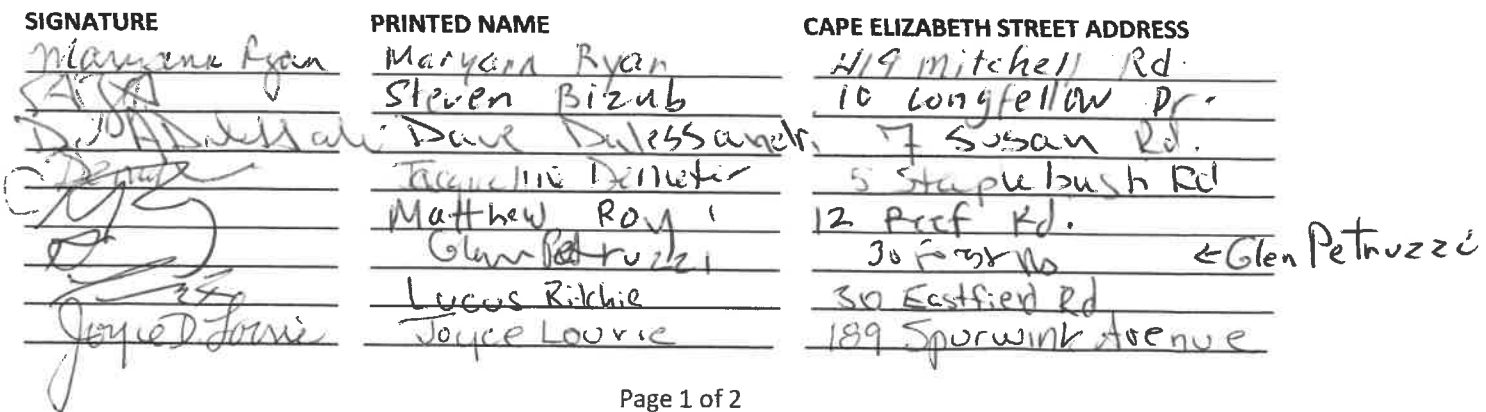 SIGNATURE PRINTED NAME CAPE ELIZABETH STREET ADDRESS
Maryann Ryan Maryann Ryan 419 Mitchell Rd.
Steven Bizub 10 Longfellow Dr.
Dave Dalessandr. 7 Susan Rd.
Jacqueline Demeter 5 Staplebush Rd
Matthew Roy 12 Reef Rd.
Glenn Petruzzi 30 Rd ←Glen Petruzzi
Lucas Ritchie 30 Eastfield Rd
Joyce D Lourie Joyce Lourie 189 Spurwink Avenue
Page 1 of 2